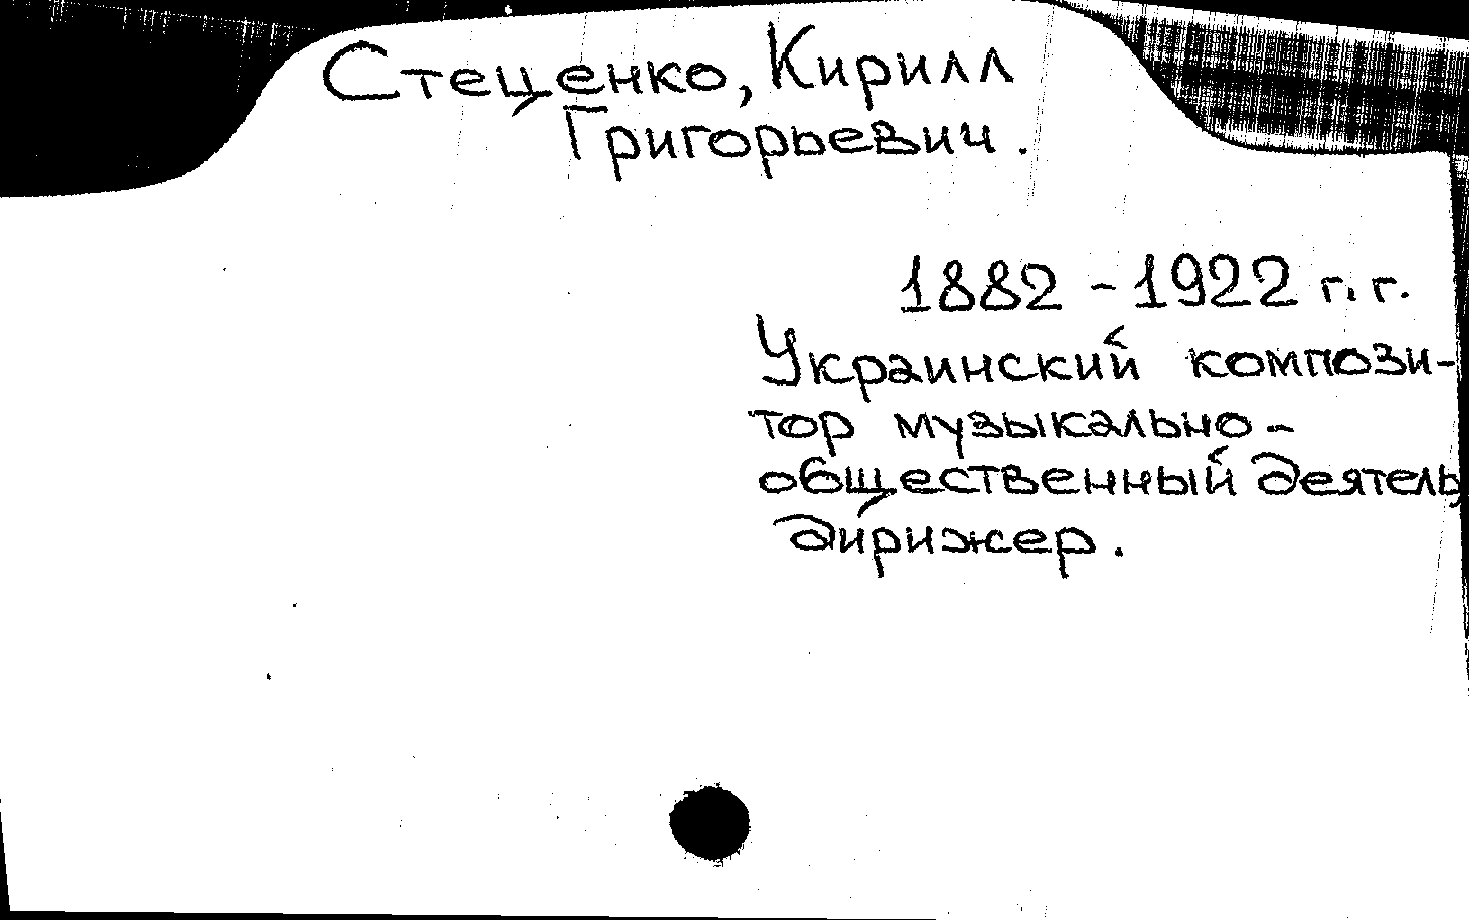 Стеценко, Кирилл
Григорьевич.
1882 - 1922 г.г.
Украинский компози-
тор музыкально-
общественный деятель,
дирижер.